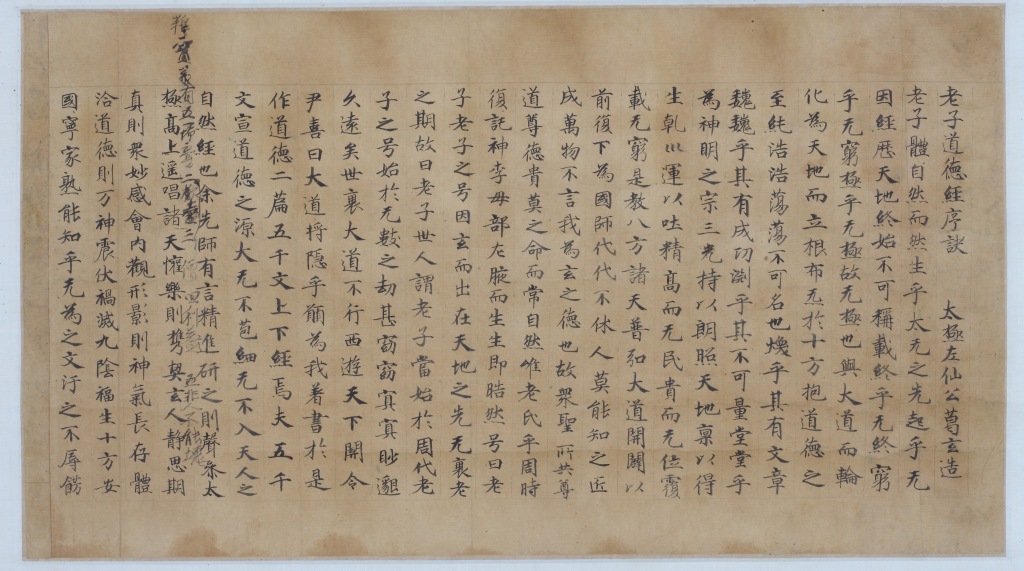 老子道德經序訣　太極左仙公葛玄造
老子體自然而然生乎太无之先起乎无
因經歷天地終始不可稱載終乎无終窮
乎无窮極乎无極故无極也與大道而輪
化為天地而立根布炁於十方抱道德之
至純浩浩蕩蕩不可名也煥乎其有文章
巍巍乎其有成功渕乎其不可量堂堂乎
為神明之宗三光持以朗照天地稟以得
生乹巛運以吐精高而无民貴而无位覆
載无窮是教八方諸天普弘大道開闢以
前復下為國師代代不休人莫能知之匠
成萬物不言我為玄之德也故衆聖所共尊
道尊德貴莫之命而常自然唯老氏乎周時
復託神李母部左腋而生生即晧然号曰老
子老子之号因玄而出在天地之先无衰老
之期故曰老子世人謂老子當始於周代老
子之号始於无數之劫甚窈窈冥冥眇邈
久遠矣世衰大道不行西遊天下關令
尹喜曰大道将隱乎願為我着書於是
作道德二篇五千文上下經焉夫五千
文宣道德之源大无不苞細无不入天人之
自然經也余先師有言精進研之則聲叅太
釋義有五一二三四五
極髙上遥唱諸天懽樂則携契玄人静思期
真則衆妙感會内觀形影則神氣長存體
洽道德則万神震伏禍滅九陰福生十方安
國寧家孰能知乎无為之文汙之不辱餝